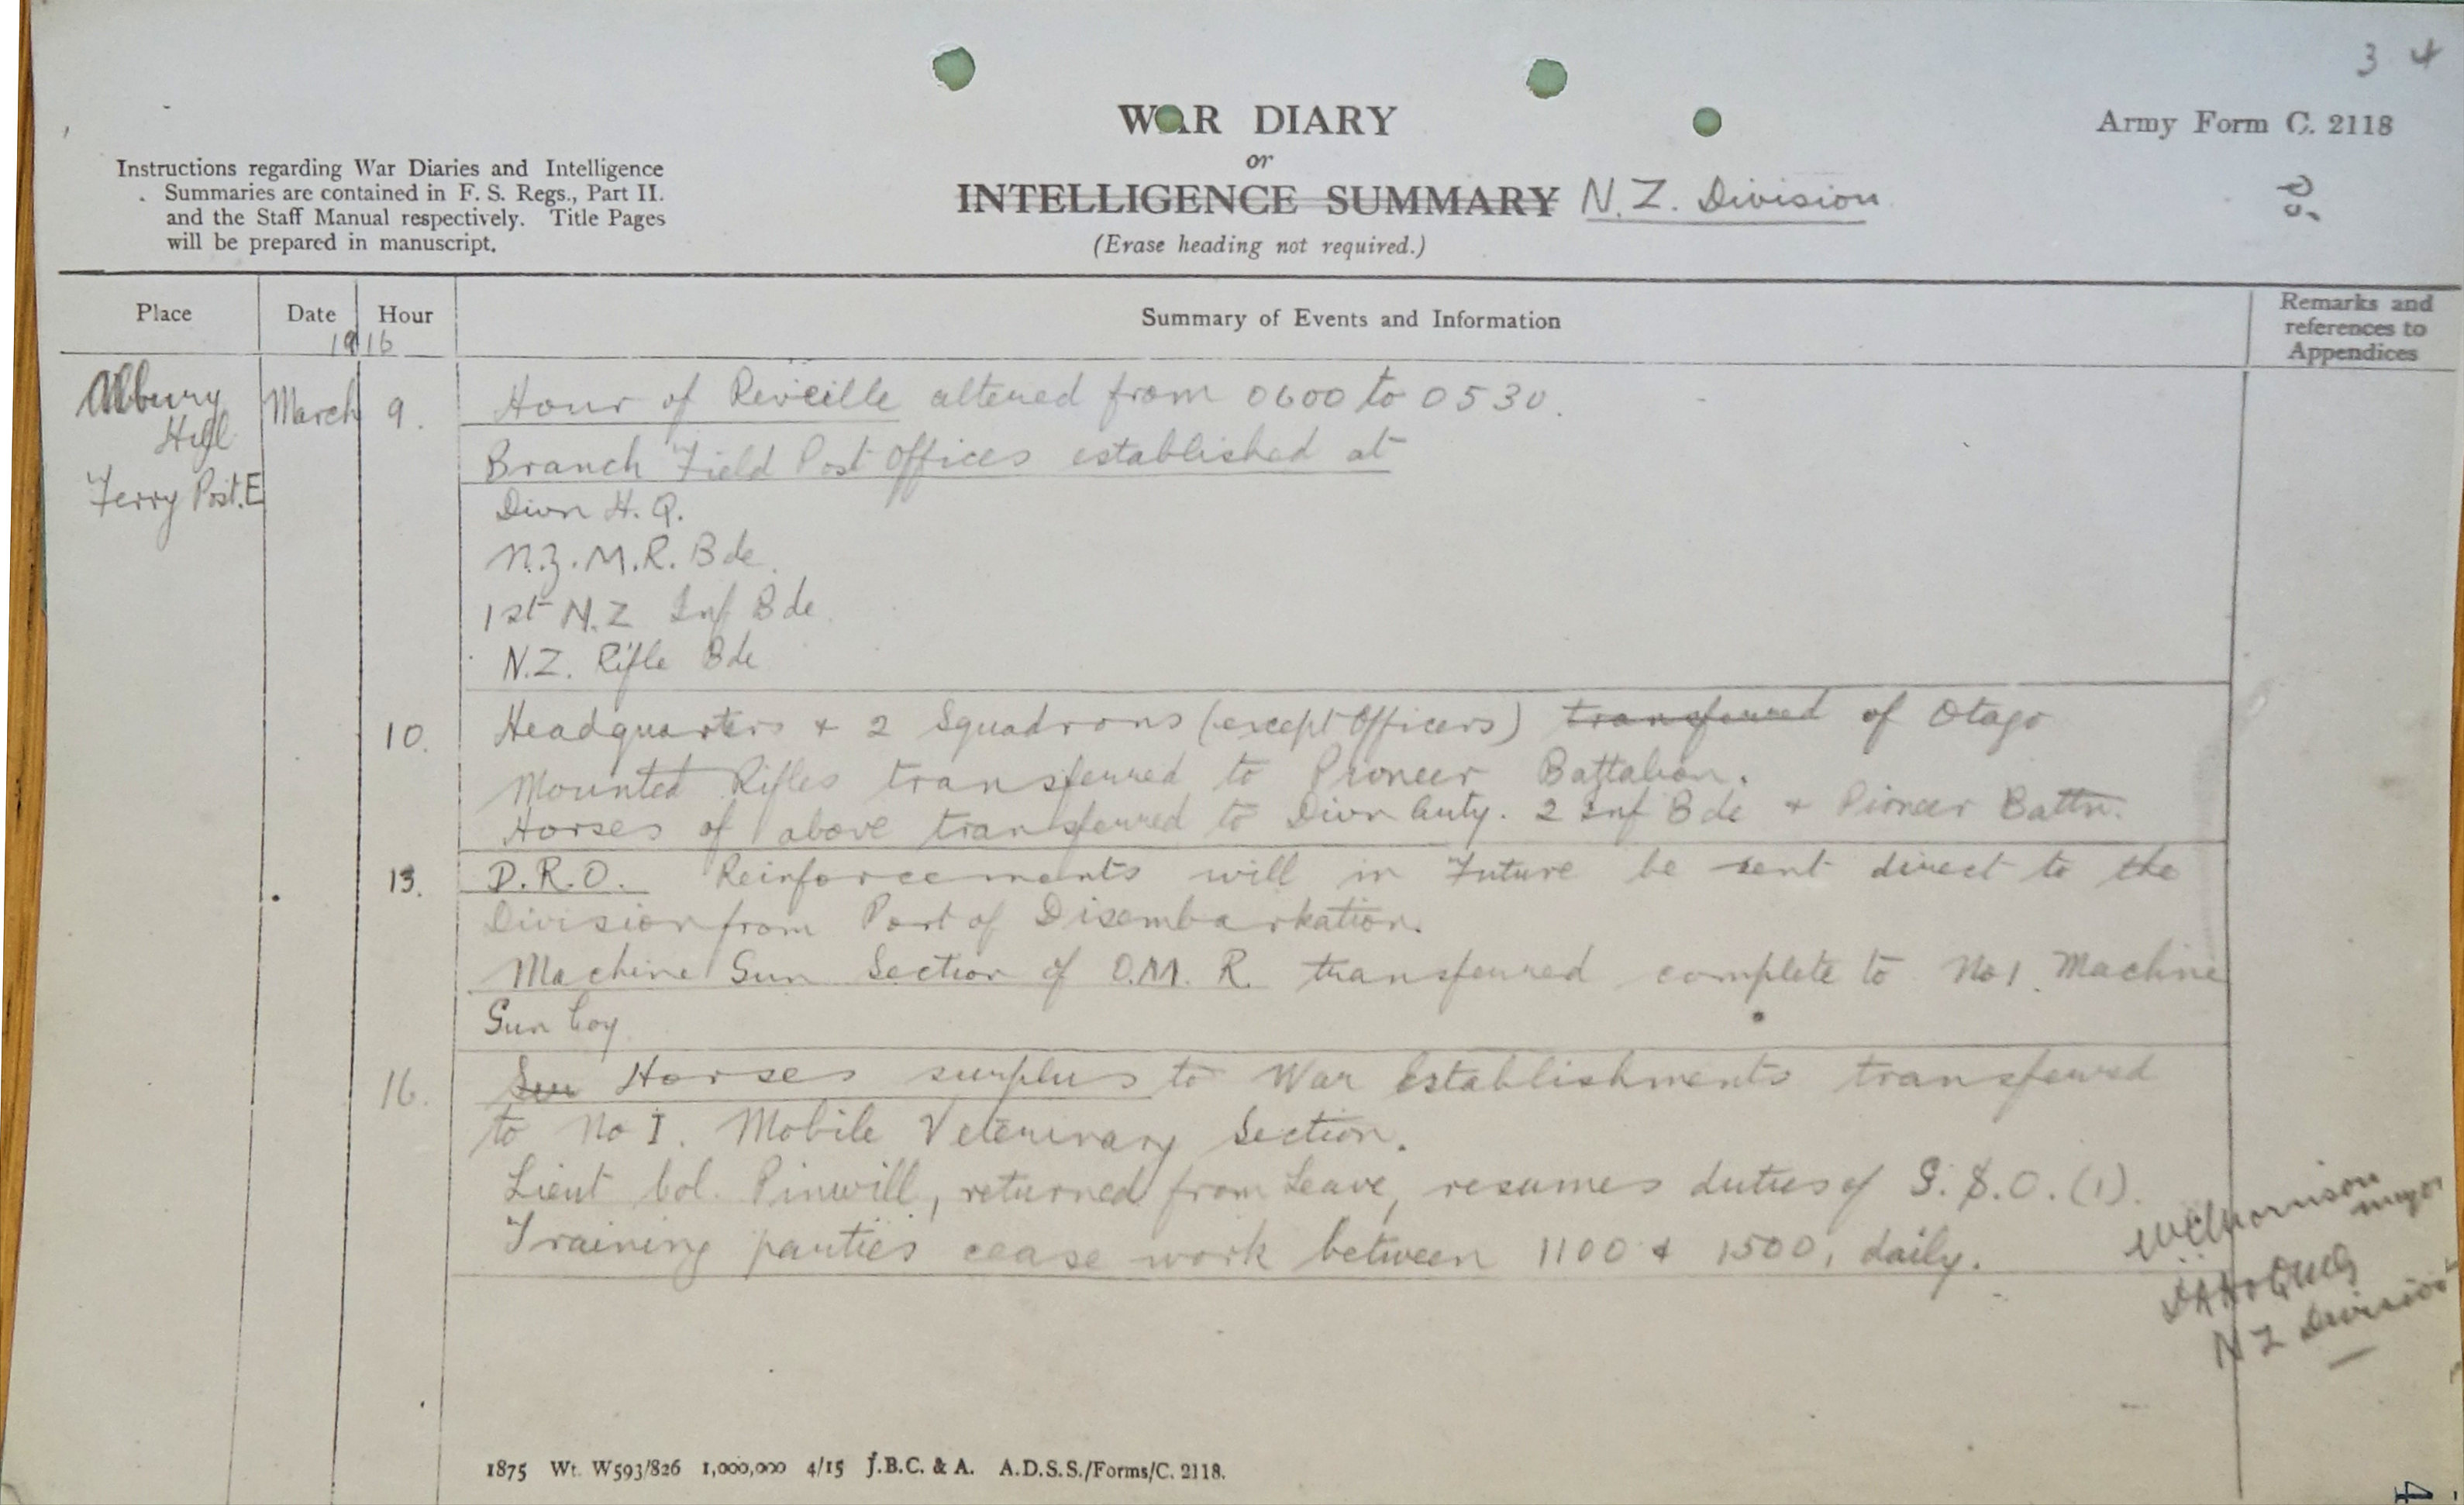 3 4
WAR DIARY
Army Form C. 2118
or
Instructions regarding War Diaries and Intelligence
Summaries are contained in F. S. Regs., Part II.
and the Staff Manual respectively. Title Pages
will be prepared in manuscript.
INTELLIGENCE SUMMARY N.Z. Division
(Erase heading not required.)
Place Date Hour Summary of Events and Information Remarks and references to Appendices
1916
Albury Hill March 9. Hour of Reveille altered from 0600 to 0530.
Branch Field Post Offices established at
Ferry Post. E
Divn H.Q.
N.Z.M.R. Bde.
1st N.Z Inf Bde.
N.Z. Rifle Bde
10. Headquarters + 2 Squadrons (except Officers) transferred of Otago
Mounted Rifles transferred to Pioneer Battalion.
Horses of above transferred to Divn Auty. 2 Inf Bde + Pioneer Battn.
13. D.R.O. Reinforcements will in Future be sent direct to the
Division from Port of Disembarkation.
Machine Gun Section of O.M.R. transferred complete to No 1. Machine
Gun Coy
16. Sur Horses surplus to War Establishments transferred
to No I. Mobile Veterinary Section.
Lieut Col. Pinwill, returned from Leave, resumes duties of G.S.O. (1).
Training parties cease work between 1100 + 1500, daily.
Morrison
major
DAA&QMG
NZ Division
1875 Wt. W593/826 1,000,000 4/15 J.B.C. & A. A.D.S.S./Forms/C. 2118.
4